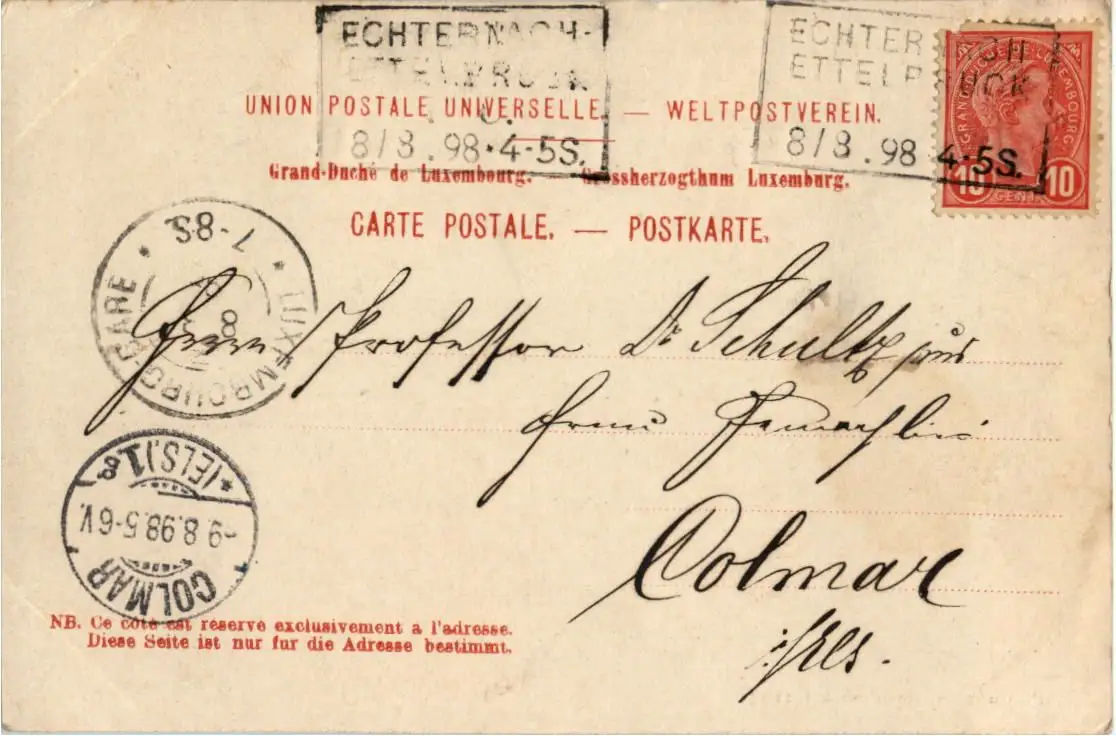 ECHTERNACH-
ETTELBRUCK
8/8.98.4-5S.
ECHTERNACH
ETTELBRUCK
8/8.98 4-5S.
GRAND DUCHÉ DE LUXEMBOURG
10 CENT. 10
UNION POSTALE UNIVERSELLE. — WELTPOSTVEREIN.
Grand-Duché de Luxembourg. — Grossherzogthum Luxemburg.
CARTE POSTALE. — POSTKARTE.
LUXEMBOURG GARE
7-8S.
8
Herrn Professor Dr Schultz und
Frau Gemahlin
Colmar
i/Els.
COLMAR
-9.8.98.5-6V.
(ELS.)1
NB. Ce côté est reservé exclusivement a l'adresse.
Diese Seite ist nur fur die Adresse bestimmt.